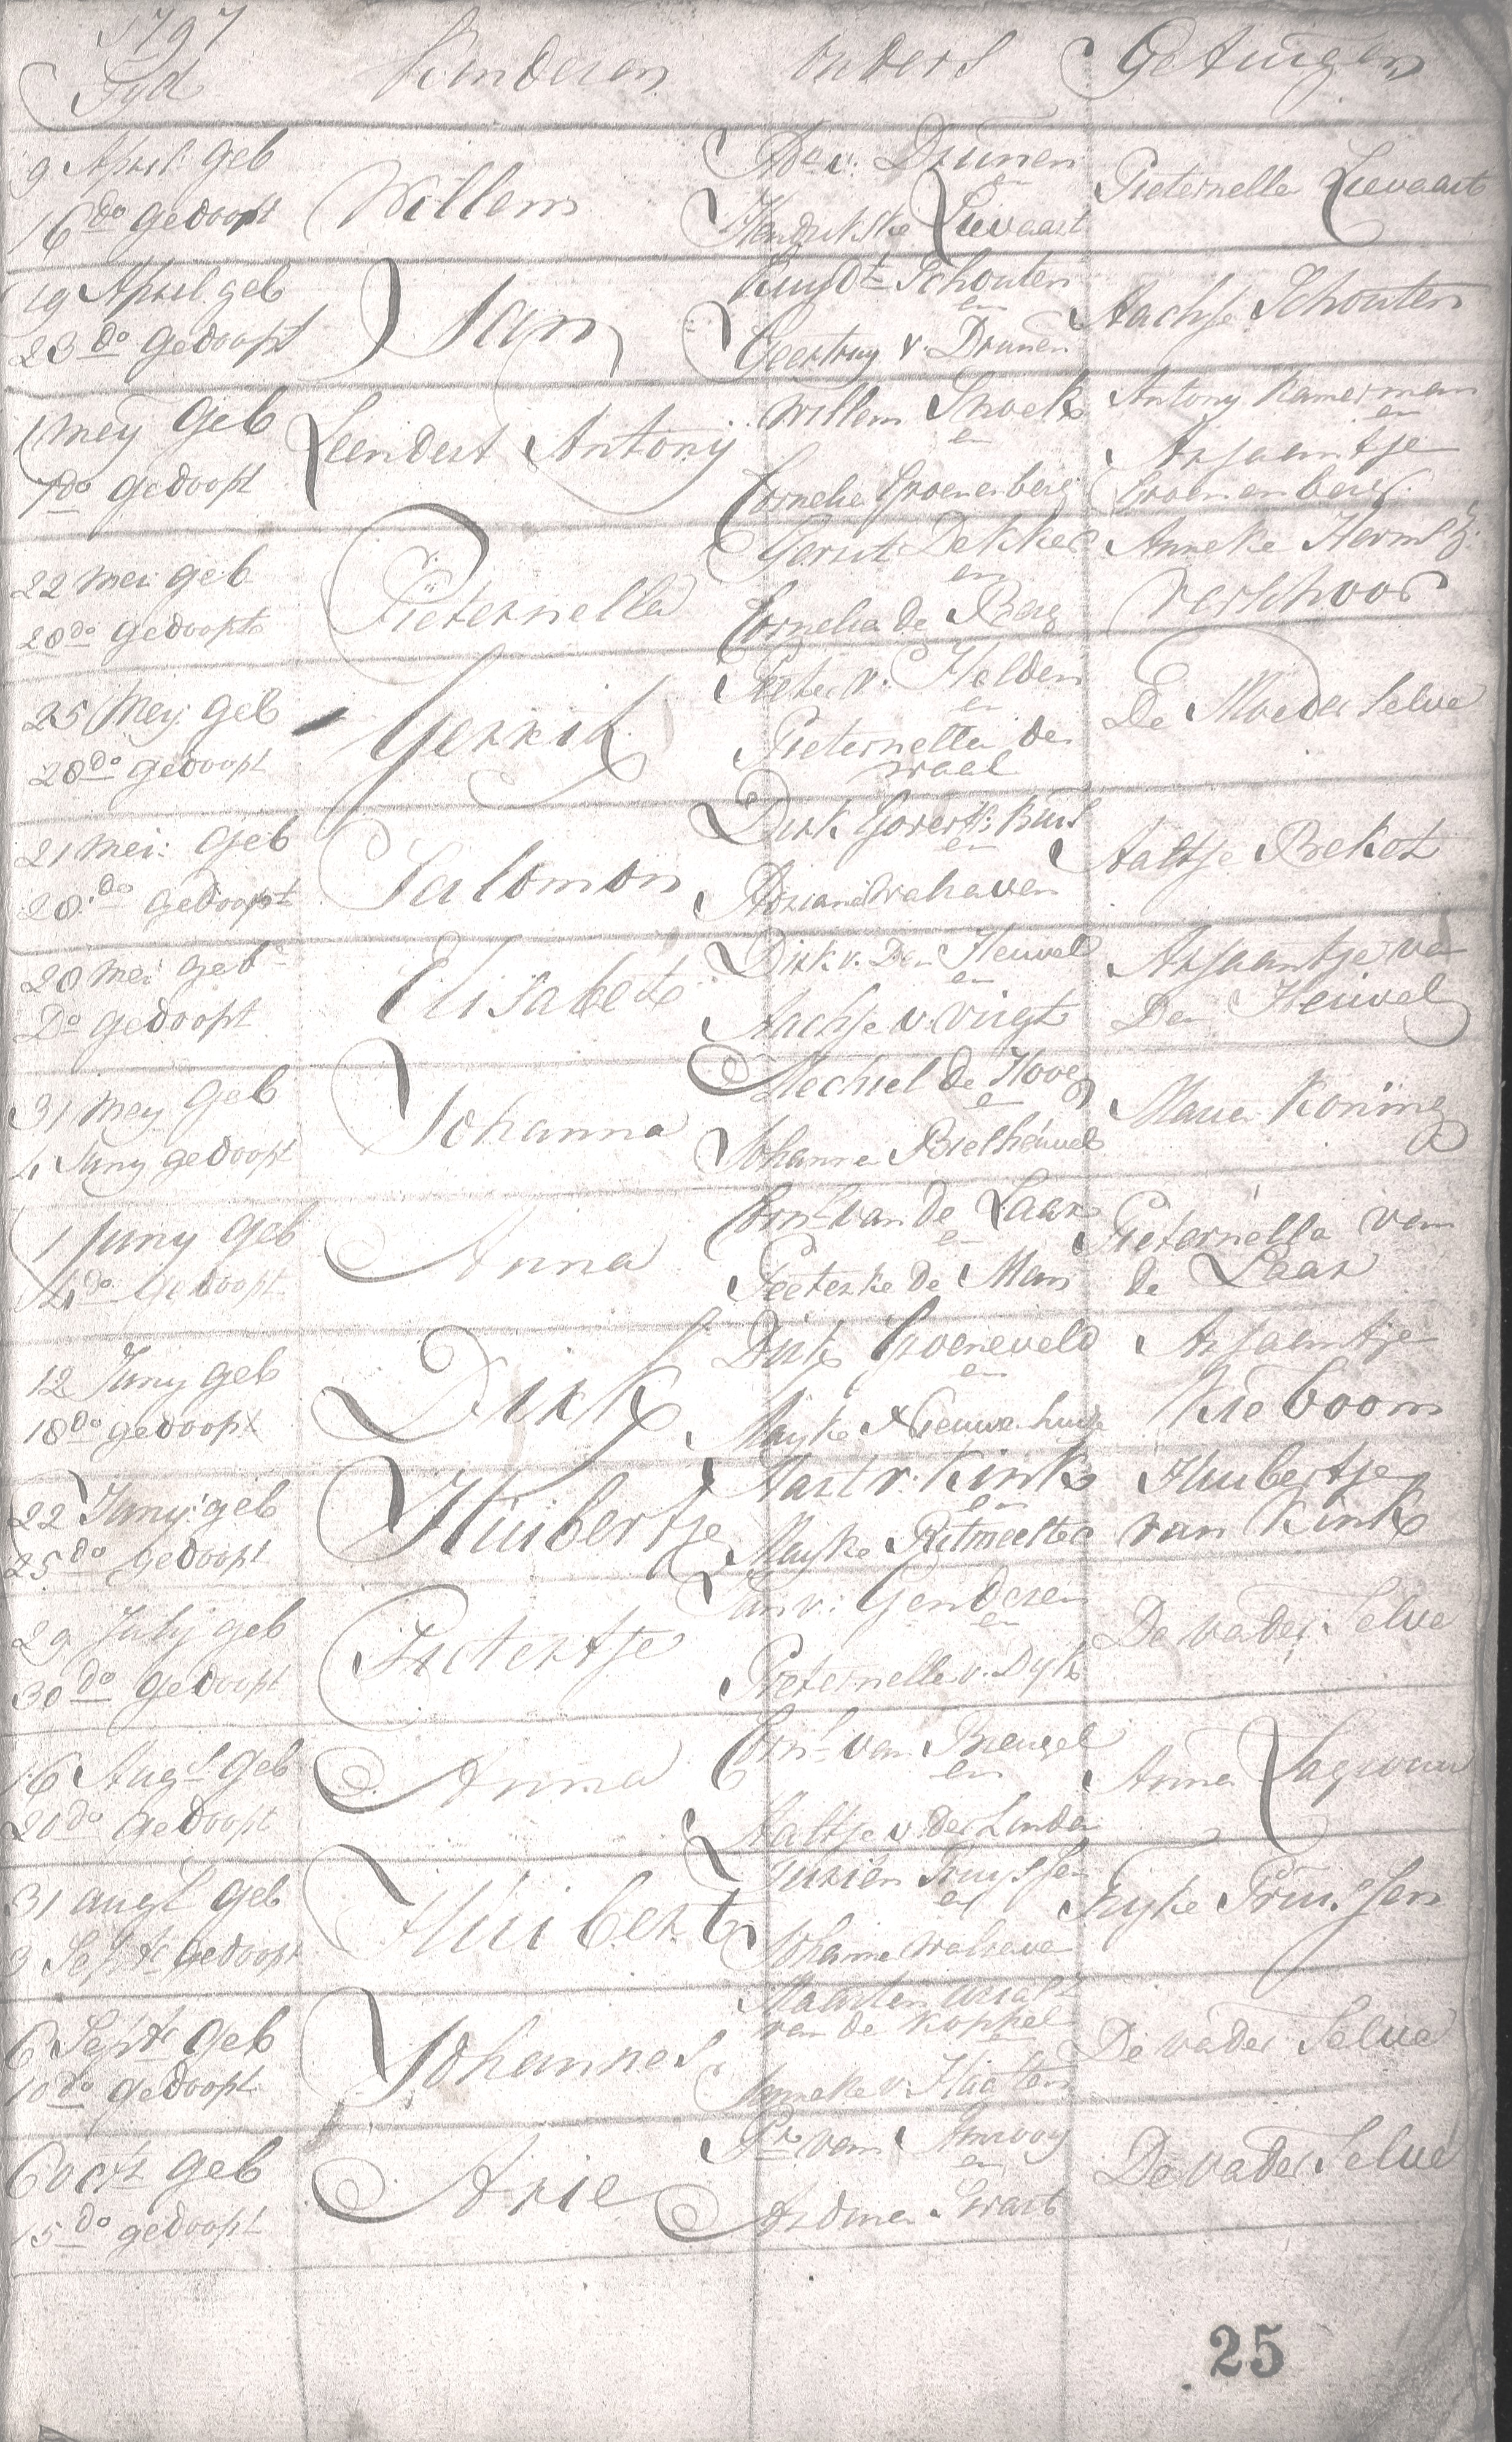 1797
Tyd Kinderen ouders Getuigen
9 April geb
16 do gedoopt
Willem
Adr. v. Drunen
en
Hendrikske Lievaart
Pieternella Lievaart
19 April geb
23 do gedoopt
Jan
Schouten
en
Geertruy v. Drunen
Aachje Schouten
1 mey geb
7 do gedoopt
Leendert Antony
Willem Snoek
en
Cornelia Groenenberg
Antony Kamerman
en
Arjaantje
Groenenberg
22 mei geb
28 do gedoopt
Pieternella
Gerrit Dekker
en
Cornelia de Berg
Anneke Herms
verschoor
25 Mey geb
28 do gedoopt
Gerrit
Pieter v. Helden
en
Pieternella de
waal
De Moeder Selve
21 mei geb
28 do gedoopt
Salomon
Dirk Goverts Buis
en
Adriana
Aaltje Bekot
28 mei geb
Do gedoopt
Elisabet
Dirk v. Den Heuvel
en
Aachje v. vugt
Arjaantje va
Den Heuvel
31 mey geb
4 Juny gedoopt
Johanna
Mechiel de Hoog
en
Johanna Bielheuvel
Maria Koning
1 Juny geb
4 do gedoopt
Anna
Corns van de Laar
en
Peeterke de Man
Pieternella van
de Laar
12 Juny geb
18 do gedoopt
Dirk
Dirk Groeneveld
en
Mayke Nieuwenhuize
Arjaantje
Kieboom
22 Juny geb
25 do gedoopt
Huibertje
Aart v. Kink
en
Mayke Ritmeester
Huibertje
van Kink
29 July geb
30 do gedoopt
Pietertje
Jan v. Genderen
en
Pieternella v. Dyk
De vader Selve
16 Augs geb
20 do Gedoopt
Anna
Corns van Breugel
en
Aaltje v der Linden
Anna
31 augt geb
3 Septr gedoopt
Huibert
Jurien Truyssen
en
Johanna walrave
Fruyssen
6 Septr geb
10 do gedoopt
Johannes
Maarten
van de Koppel
en
Janneke v. Haaften
De vader Selve
6 octr geb
15 do gedoopt
Arie
Pr van Amroy
en
Ardina Swart
De vader Selve
25